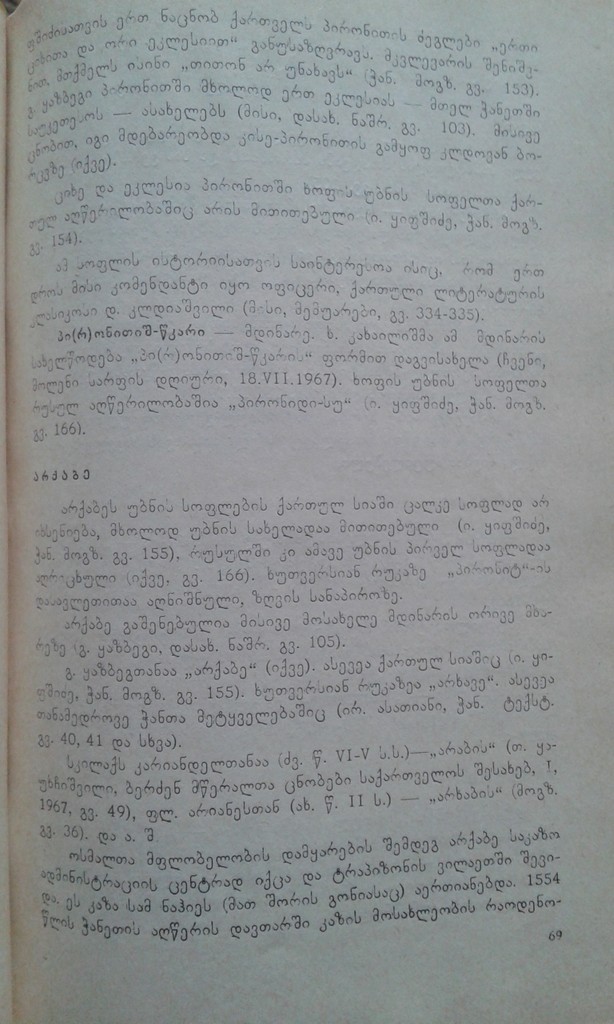 ფშიძისათვის ერთ ნაცნობ ქართველს პირონითის ძეგლები „ერთი
ციხითა და ორი ეკლესიით“ განუსაზღვრავა. მკვლევარის შენიშვ-
ნით, მთქმელს ისინი „თითონ არ უნახავს“ (ჭან. მოგზ. გვ. 153).
გ. ყაზბეგი პირონითში მხოლოდ ერთ ეკლესიას — მთელ ჭანეთში
საუკეთესოს — ასახელებს (მისი, დასახ. ნაშრ. გვ. 103). მისივე
ცნობით, იგი მდებარეობდა კისე-პირონითის გამყოფ კლდოვან ბო-
რცვზე (იქვე).
ციხე და ეკლესია პირონითში ხოფის უბნის სოფელთა ქარ-
თულ აღწერილობაშიც არის მითითებული (ი. ყიფშიძე, ჭან. მოგზ.
გვ. 154).
ამ სოფლის ისტორიისათვის საინტერესოა ისიც, რომ ერთ
დროს მისი კომენდანტი იყო ოფიცერი, ქართული ლიტერატურის
კლასიკოსი დ. კლდიაშვილი (მისი, მემუარები, გვ. 334-335).
პი(რ)ონითიშ-წკარი — მდინარე. ხ. კახაილიშმა ამ მდინარის
სახელწოდება „პი(რ)ონითიშ-წკარის“ ფორმით დაგვისახელა (ჩვენი,
მოლენი სარფის დღიური, 18.VII.1967). ხოფის უბნის სოფელთა
რუსულ აღწერილობაშია „პირონიდი-სუ“ (ი. ყიფშიძე, ჭან. მოგზ.
გვ. 166).
არქაბე
არქაბეს უბნის სოფლების ქართულ სიაში ცალკე სოფლად არ
იხსენიება, მხოლოდ უბნის სახელადაა მითითებული (ი. ყიფშიძე,
ჭან. მოგზ. გვ. 155). რუსულში კი ამავე უბნის პირველ სოფლადაა
აღრიცხული (იქვე, გვ. 166). ხუთვერსიან რუკაზე „პირონიტ“-ის
დასავლეთითაა აღნიშნული, ზღვის სანაპიროზე.
არქაბე გაშენებულია მისივე მოსახელე მდინარის ორივე მხა-
რეზე (გ. ყაზბეგი, დასახ. ნაშრ. გვ. 105).
გ. ყაზბეგთანაა „არქაბე“ (იქვე). ასევეა ქართულ სიაშიც (ი. ყი-
ფშიძე, ჭან. მოგზ. გვ. 155). ხუთვერსიან რუკაზეა „არხავე“. ასევეა
თანამედროვე ჭანთა მეტყველებაშიც (ირ. ასათიანი, ჭან. ტექსტ.
გვ. 40, 41 და სხვა).
სკილაქს კარიანდელთანაა (ძვ. წ. VI-V ს.ს.)—„არაბის“ (თ. ყა-
უხჩიშვილი, ბერძენ მწერალთა ცნობები საქართველოს შესახებ, I,
1967, გვ. 49), ფლ. არიანესთან (ახ. წ. II ს.) — „არხაბის“ (მოგზ.
გვ. 36). და ა. შ.
ოსმალთა მფლობელობის დამყარების შემდეგ არქაბე საკაზო
ადმინისტრაციის ცენტრად იქცა და ტრაპიზონის ვილაეთში შევი-
და. ეს კაზა სამ ნაჰიეს (მათ შორის გონიასაც) აერთიანებდა. 1554
წლის ჭანეთის აღწერის დავთარში კაზის მოსახლეობის რაოდენო-
69